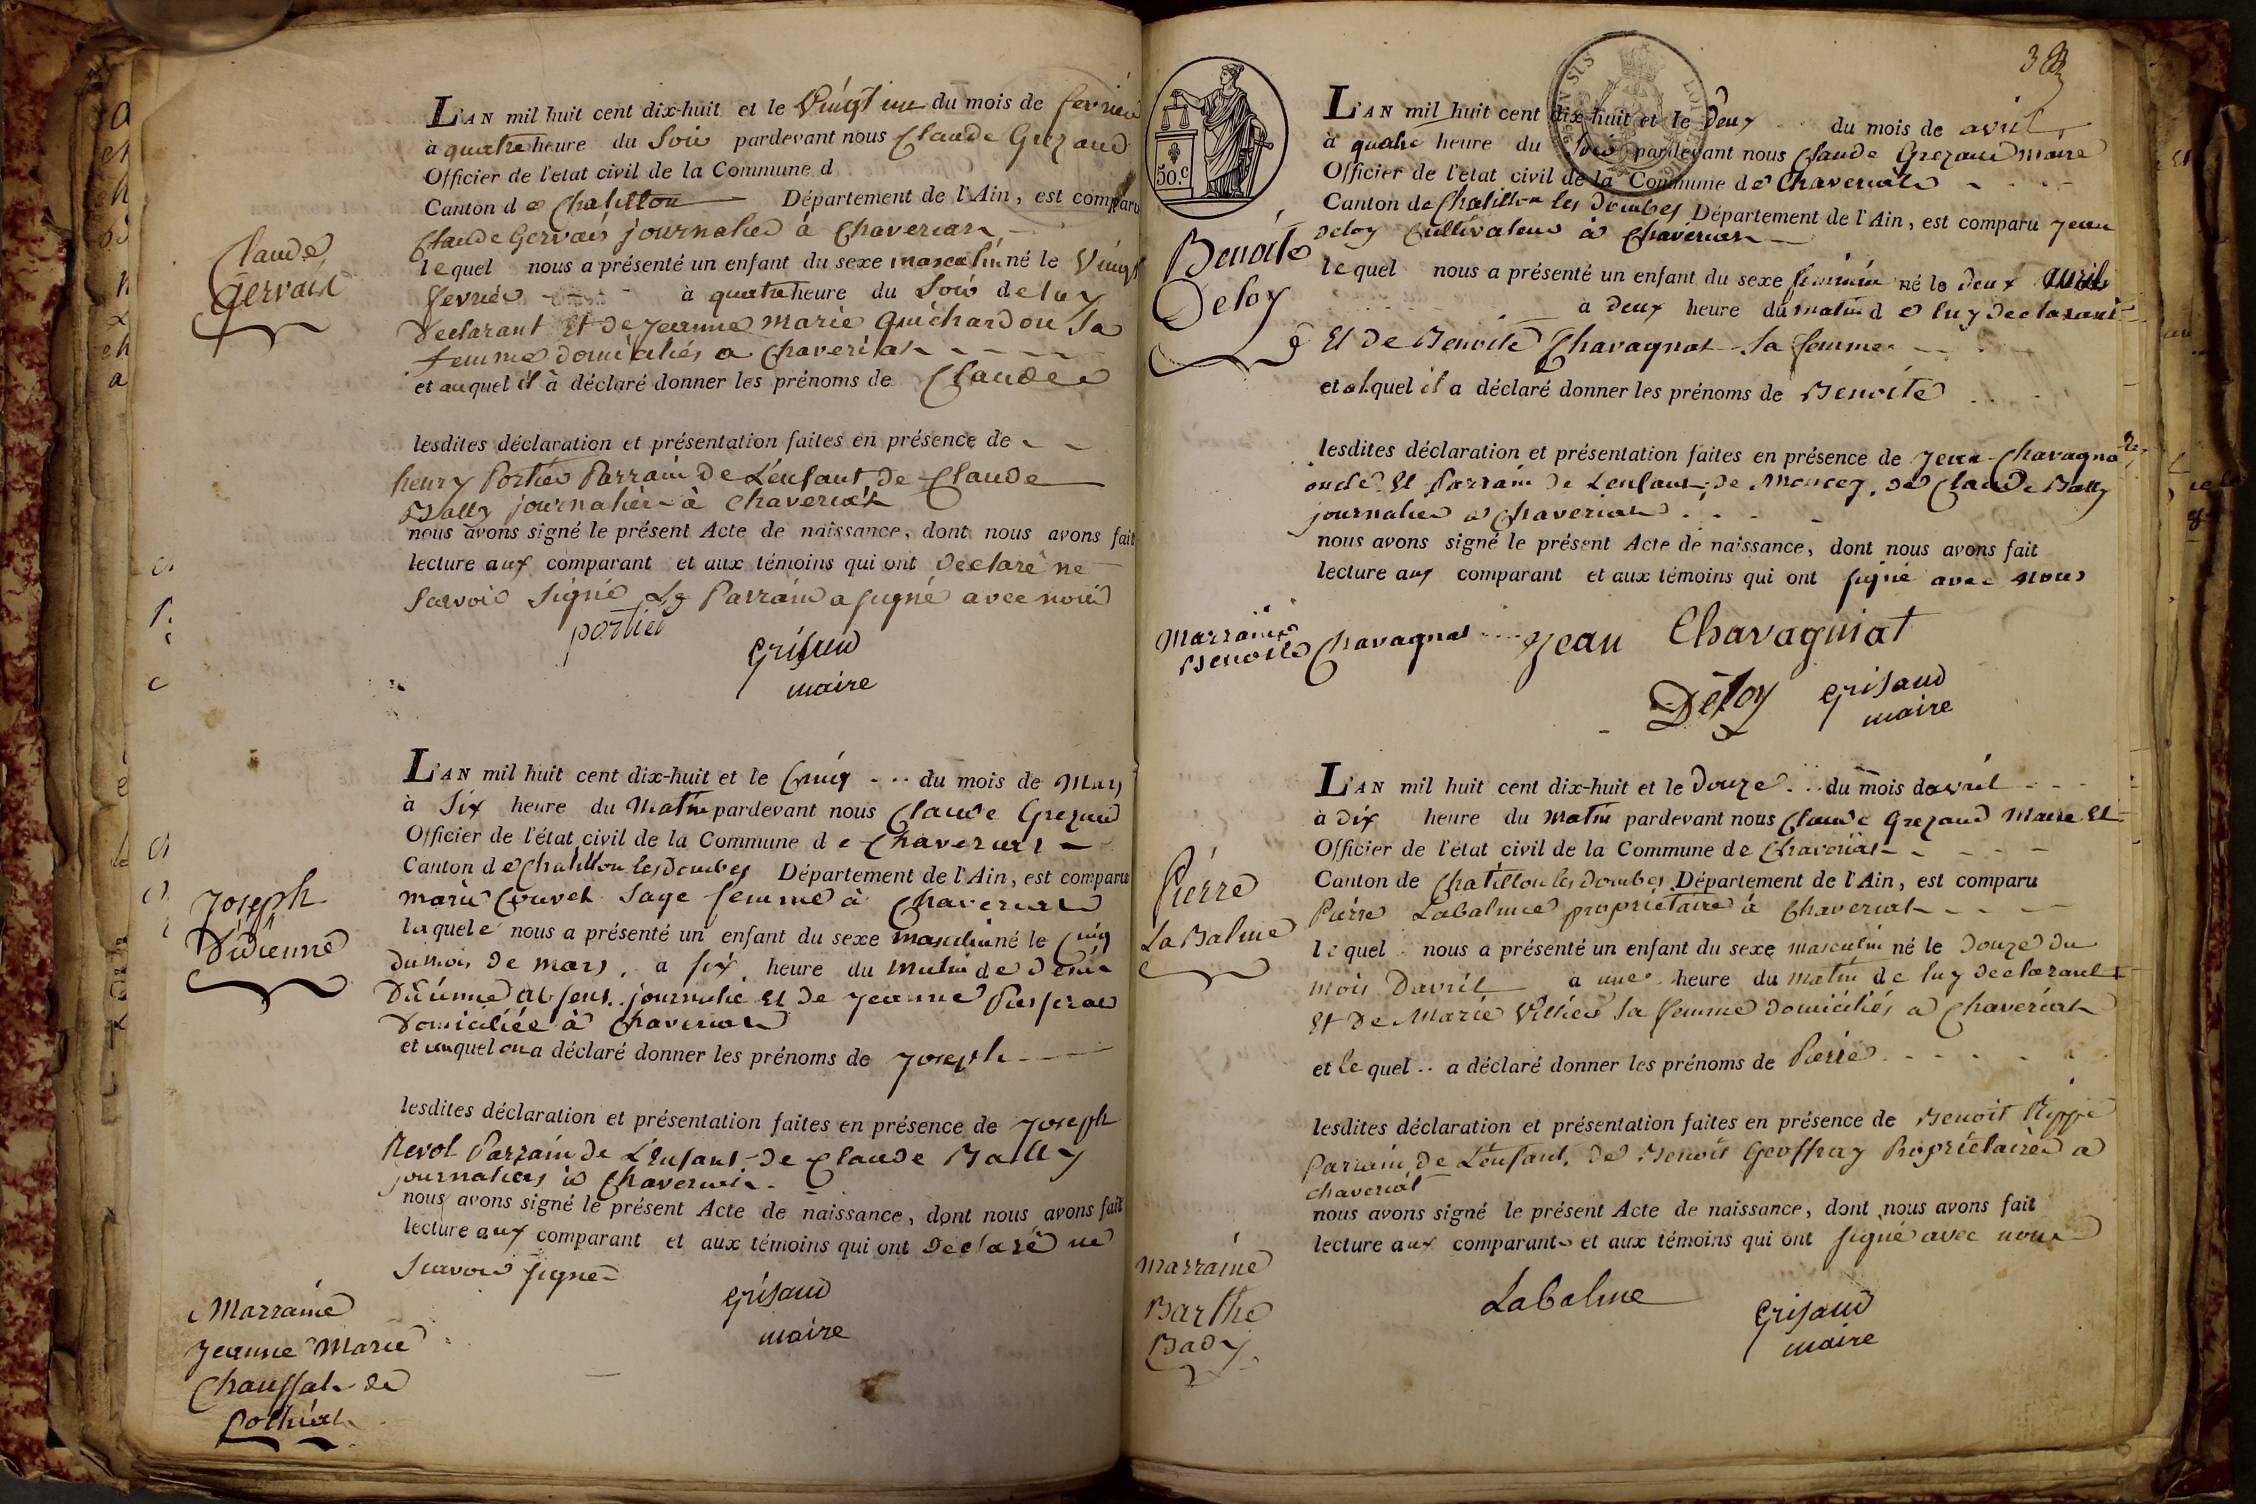 Claude
Gervais
L'AN mil huit cent dix-huit et le Vingt un du mois de fevrier
à quatre heure du Soir pardevant nous Claude Grezaud
Officier de l'etat civil de la Commune d
Canton de Chatillon Département de l'Ain, est comparu
Claude Gervais journalier à Chaveriat
lequel nous a présenté un enfant du sexe masculin né le Vingt
fevrier à quatre heure du Soir de luy
Declarant Et de jeanne marie Guichardon Sa
femme domiciliés a Chaveriat
et auquel il à déclaré donner les prénoms de Claude
lesdites déclaration et présentation faites en présence de
henry Portier Parrain de L'enfant, de Claude
Bally journalier à Chaveriat
nous avons signé le présent Acte de naissance, dont nous avons fait
lecture aux comparant et aux témoins qui ont Declaré ne
Savoir Signé Le Parrain a signé avec nous
portier
Grisaud
maire
Joseph
Didienne
L'AN mil huit cent dix-huit et le Cinq du mois de Mars
à Six heure du Matin pardevant nous Claude Grezaud
Officier de l'état civil de la Commune de Chaveriat
Canton de Chatillon les dombes Département de l'Ain, est comparu
marie Couvet Sage femme à Chaveriat
laquele nous a présenté un enfant du sexe masculin né le Cinq
du mois de mars, a six heure du Matin de Denis
Didienne absent journalié Et de jeanne
Domiciliée à Chaveriat
et auquel on a déclaré donner les prénoms de joseph
lesdites déclaration et présentation faites en présence de joseph
Revol Parrain de L'Enfant, de Claude Bally
journaliers à Chaveriat
nous avons signé le présent Acte de naissance, dont nous avons fait
lecture aux comparant et aux témoins qui ont Declaré ne
Scavoir signé
Grisaud
maire
Marraine
jeanne Marie
Chaussat de
Pothiat
50.c
38
Benoite
Deloy
L'AN mil huit cent dix-huit et le Deux du mois de avril
à quatre heure du Soir pardevant nous Claude Grezaud maire
Officier de l'etat civil de la Commune de Chaveriat
Canton de Chatillon les Dombes Département de l'Ain, est comparu jean
Deloy Cultivateur à Chaveriat
lequel nous a présenté un enfant du sexe feminin né le deux avril
a Deux heure du matin de luy Declarant
Et de Benoite Chavagnat Sa femme
et alquel il a déclaré donner les prénoms de Benoite
lesdites déclaration et présentation faites en présence de jean Chavagna
oncle Et Parrain de L'enfant, de Moncey, de Claude Bally
journalier a Chaveriat
nous avons signé le présent Acte de naissance, dont nous avons fait
lecture aux comparant et aux témoins qui ont signé avec nous
Marraine
Benoite Chavagnat
jean Chavagniat
Deloy
Grisaud
maire
Pierre
LaBalme
L'AN mil huit cent dix-huit et le Douze du mois davril
à Dix heure du matin pardevant nous Claude Grezaud Maire Et
Officier de l'état civil de la Commune de Chaveriat
Canton de Chatillon les dombes Département de l'Ain, est comparu
Pierre Labalme propriétaire à Chaveriat
lequel nous a présenté un enfant du sexe masculin né le Douze du
mois Davril a une heure du matin de luy declarant
Et de Marie Villier Sa femme domiciliés a Chaveriat
et le quel a déclaré donner les prénoms de Pierre
lesdites déclaration et présentation faites en présence de Benoit Rippe
Parrain de L'enfant, de Benoit Geoffray Propriétaires a
chaveriat
nous avons signé le présent Acte de naissance, dont nous avons fait
lecture aux comparants et aux témoins qui ont signé avec nous
Labalme
Grisaud
maire
marraine
Barthe
Bady